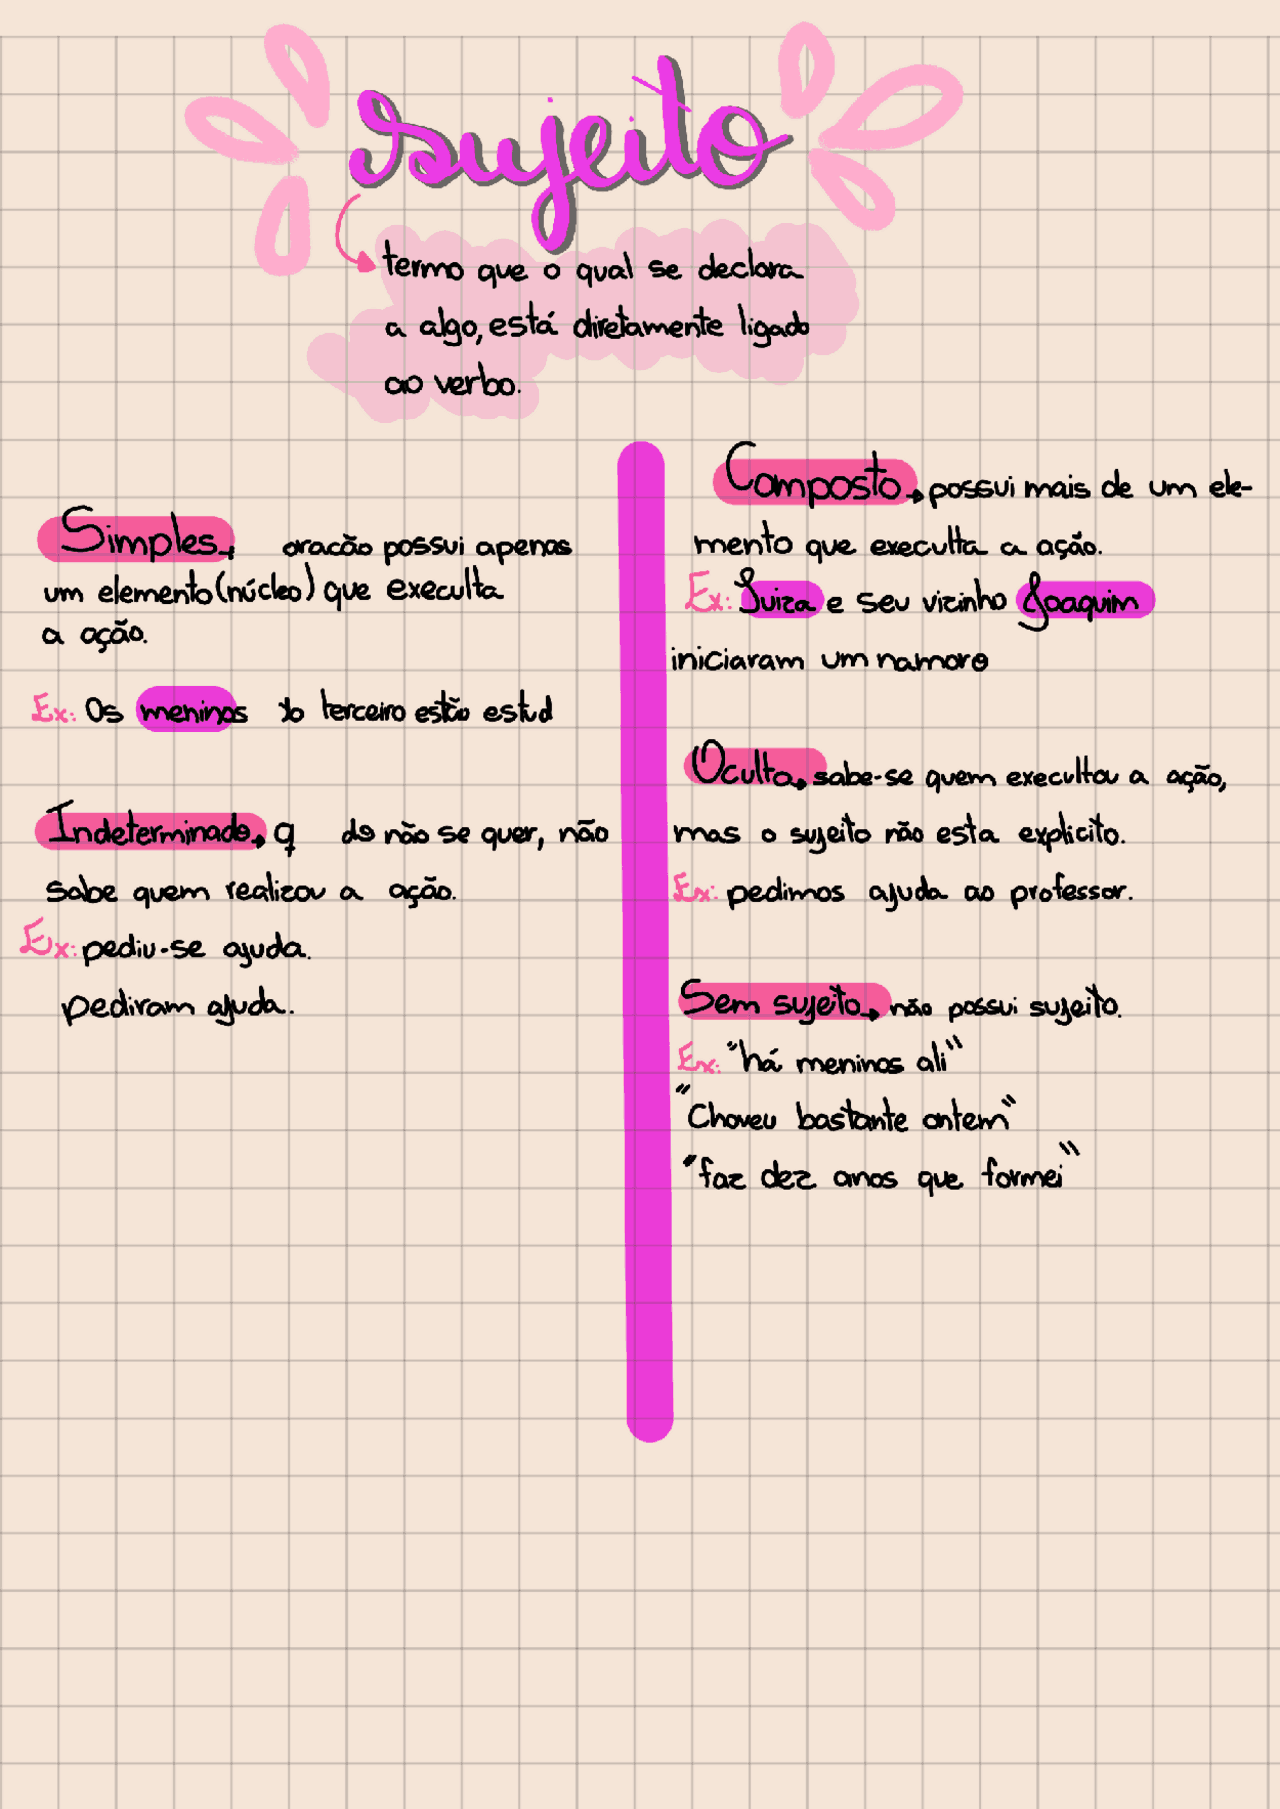 sujeito
termo que o qual se declara
a algo, está diretamente ligado
ao verbo.
Simples oracão possui apenas
um elemento (núcleo) que execulta
a ação.
Ex: Os meninos terceiro estão estud
Indeterminado q do não se quer, não
sabe quem realizou a ação.
Ex: pediu-se ajuda.
pediram ajuda.
Composto possui mais de um ele-
mento que execulta a ação.
Ex: Luiza e seu vizinho Joaquim
iniciaram um namoro
Oculto sabe-se quem execultou a ação,
mas o sujeito não esta explicito.
Ex: pedimos ajuda ao professor.
Sem sujeito não possui sujeito.
Ex: "há meninos ali"
"Choveu bastante ontem"
"faz dez anos que formei"